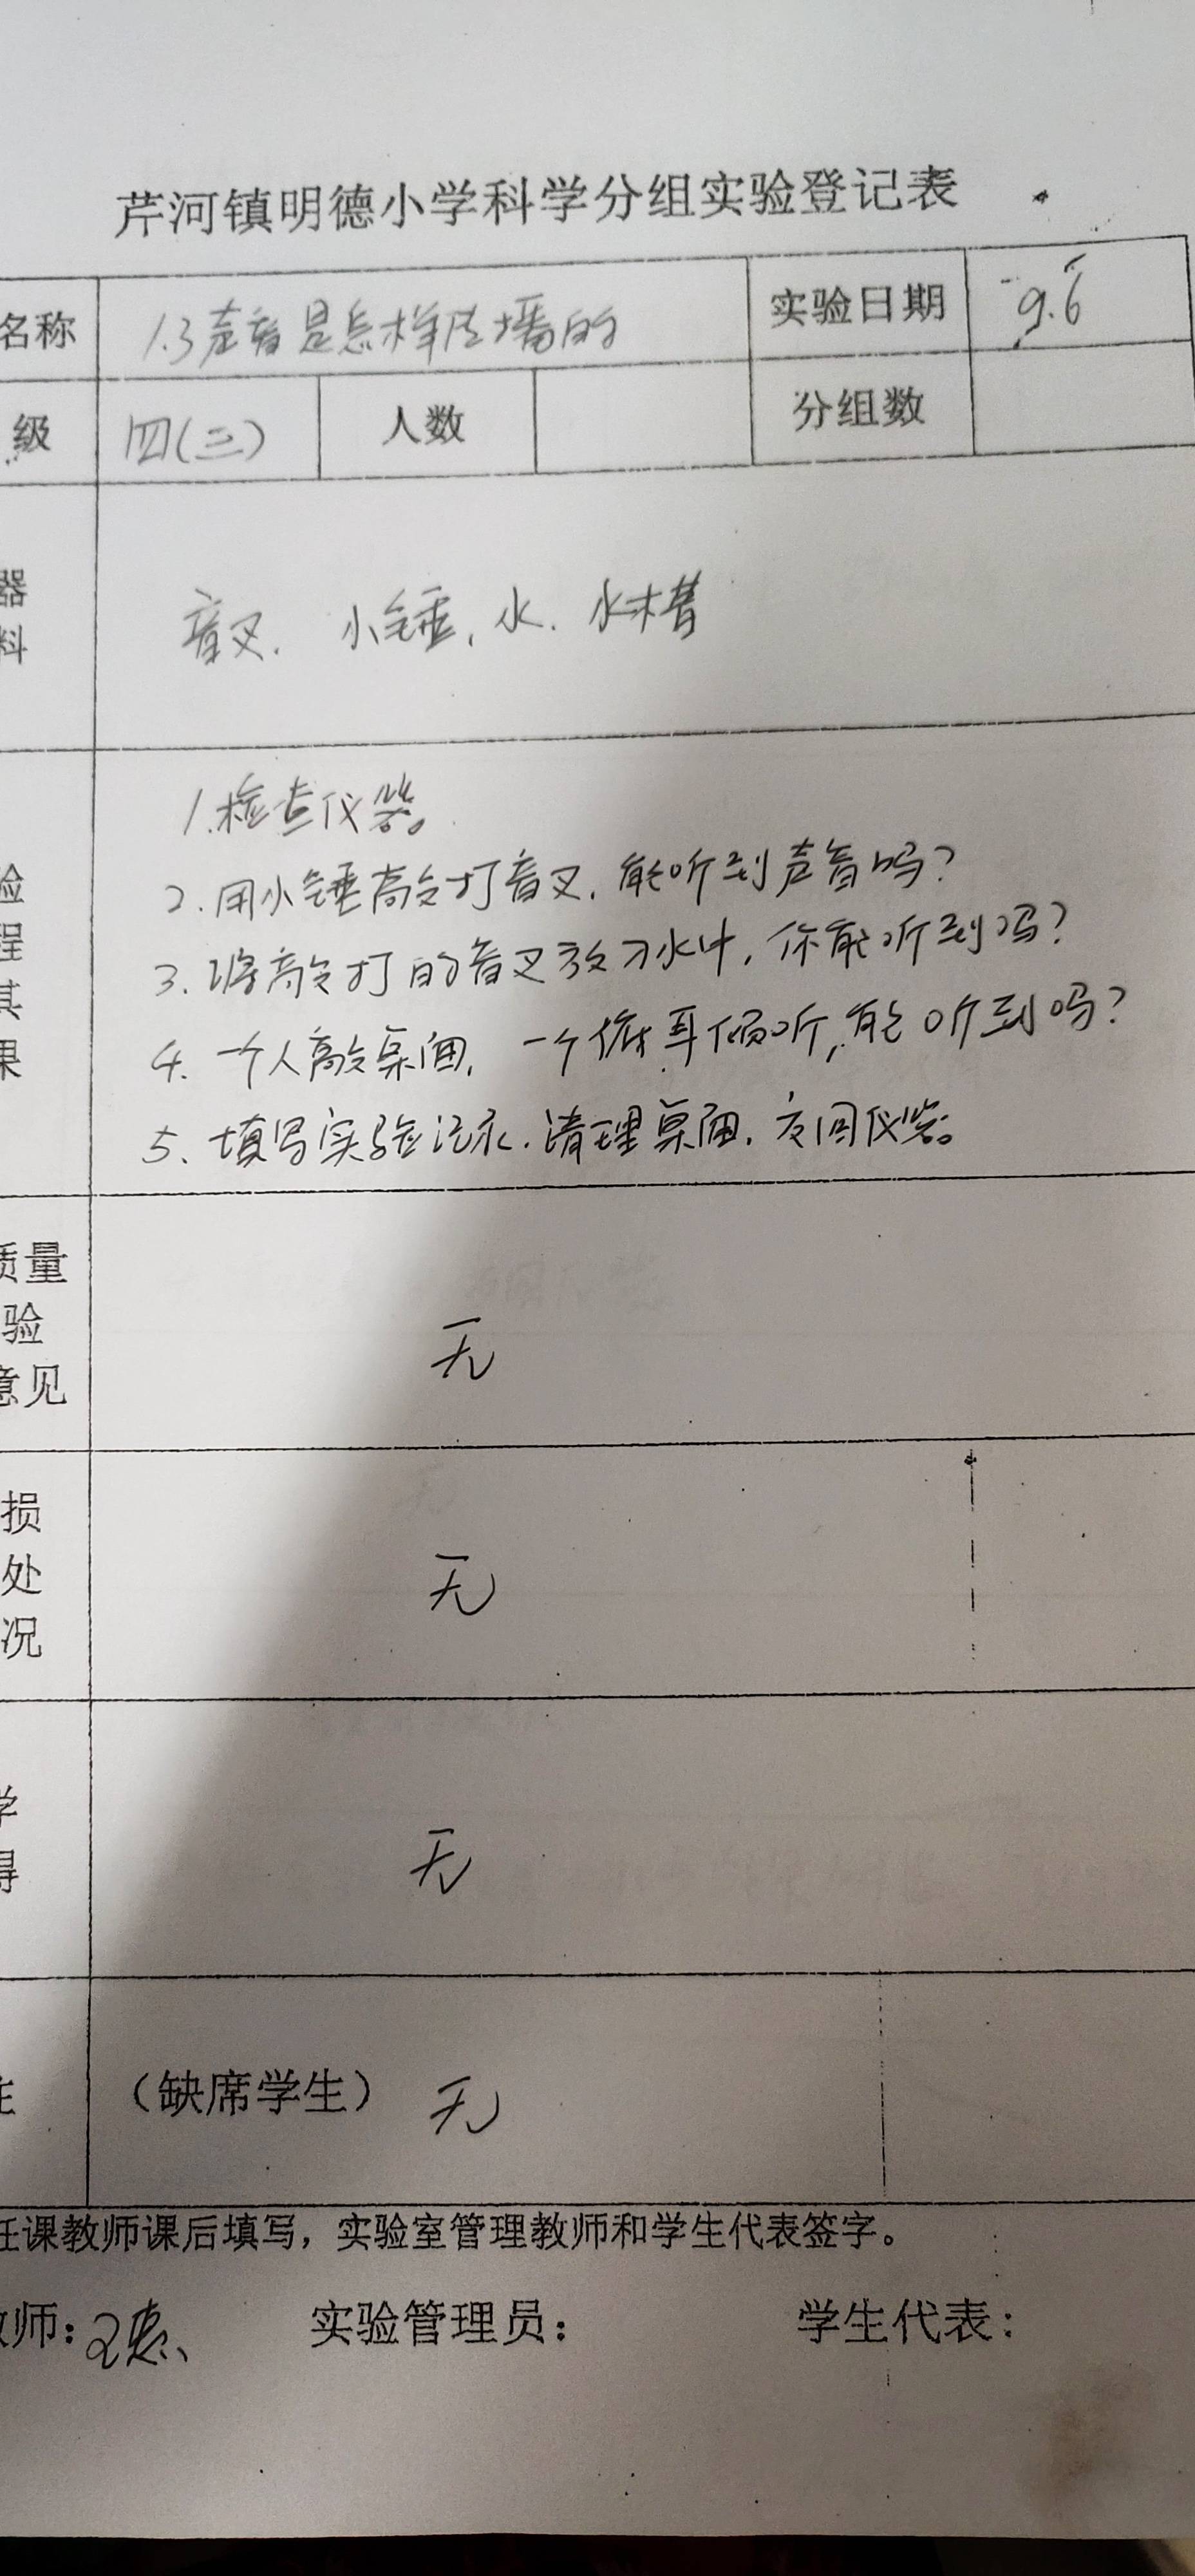 芹河镇明德小学科学分组实验登记表
名称 1.3声音是怎样传播的 实验日期 9.6
级 四(三) 人数 分组数
器
料
音叉、小锤、水、水槽
1.检查仪器。
2.用小锤敲打音叉,能听到声音吗?
3、将敲打的音叉放入水中,你能听到吗?
4、一个人敲桌面,一个俯耳倾听,能听到吗?
5、填写实验记录,清理桌面,交回仪器。
验
程
其
果
质量
验
意见
无
损
处
况
无
学
得
无
注 (缺席学生) 无
任课教师课后填写,实验室管理教师和学生代表签字。
教师: 实验管理员: 学生代表: